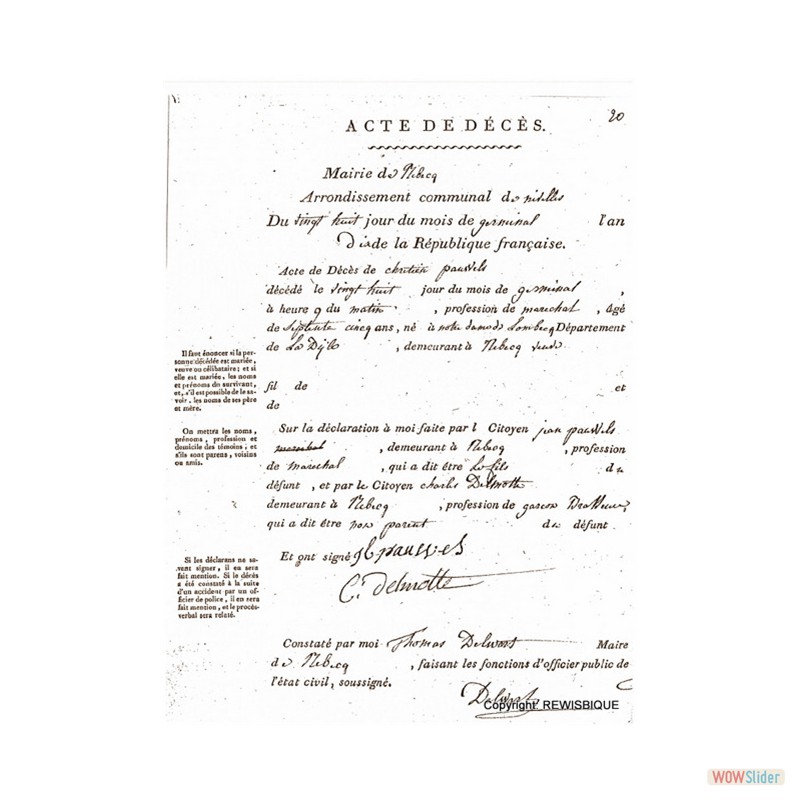 20
ACTE DE DÉCÈS.
Mairie de Rebecq
Arrondissement communal de nivelles
Du vingt huit jour du mois de germinal l'an
dix de la République française.
Acte de Décès de chretien pauwels
décédé le vingt huit jour du mois de germinal ,
à heure 9 du matin , profession de marechal , âgé
de septente cinq ans, né à notre dame de Lombecq Département
de La Dÿle , demeurant à Rebecq
fil de et
de
Sur la déclaration à moi faite par l Citoyen jean pauwels
marechal , demeurant à Rebecq , profession
de marechal , qui a dit être le fils du
défunt , et par le Citoyen charles Delmotte
demeurant à Rebecq , profession de garcon
qui a dit être non parent du défunt .
Et ont signé pauwels
C. Delmotte
Constaté par moi Thomas Delwart Maire
de Rebecq , faisant les fonctions d'officier public de
l'état civil, soussigné.
Delwart
Il faut énoncer si la per-
sonne décédée est mariée,
veuve ou célibataire; et si
elle est mariée, les noms
et prénoms du survivant,
et, s'il est possible de le sa-
voir, les noms de ses père
et mère.
On mettra les noms,
prénoms, profession et
domicile des témoins; et
s'ils sont parens, voisins
ou amis.
Si les déclarans ne sa-
vent signer, il en sera
fait mention. Si le décès
a été constaté à la suite
d'un accident par un of-
ficier de police, il en sera
fait mention, et le procès-
verbal sera relaté.
Copyright: REWISBIQUE
WOWSlider